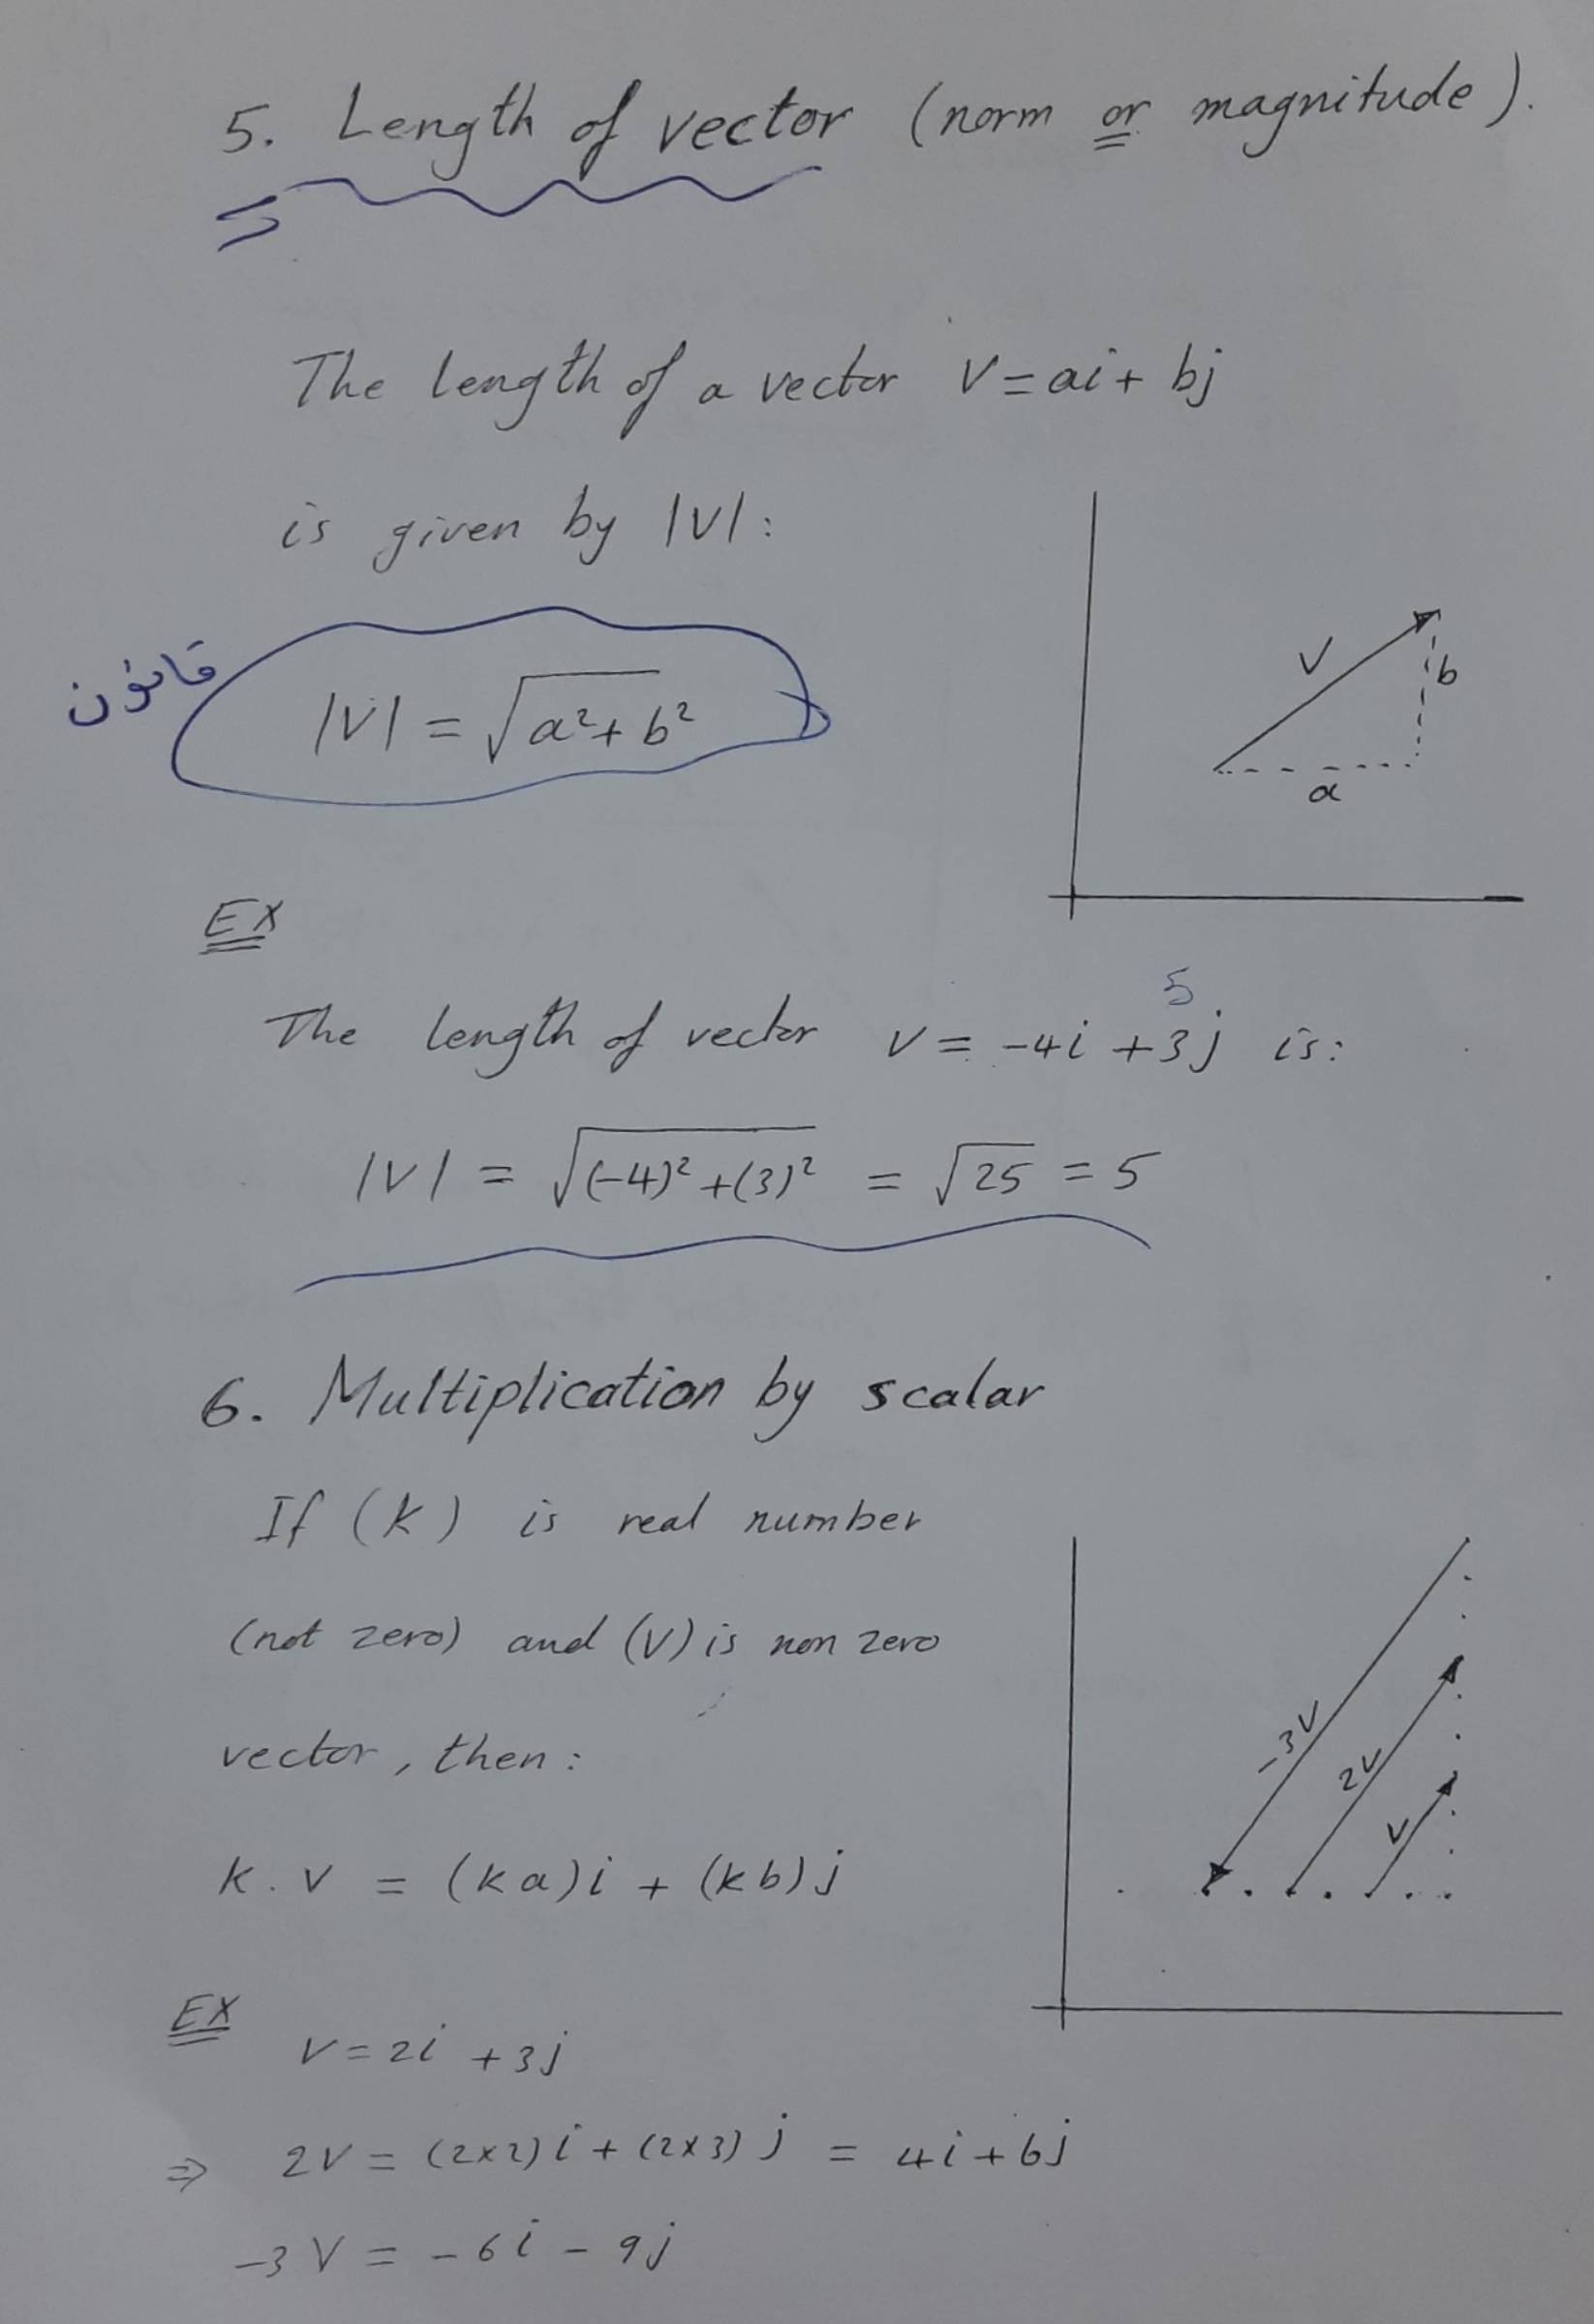 5. Length of vector (norm or magnitude).
The length of a vector V = ai + bj
is given by |V|:
قانون
|V| = √a²+b²
V
b
a
EX
5
The length of vector V = -4i +3j is:
|V| = √(-4)²+(3)² = √25 = 5
6. Multiplication by scalar
If (K) is real number
(not zero) and (V) is non zero
vector, then:
K.V = (Ka)i + (Kb)j
-3V
2V
V
EX
V = 2i +3j
⇒ 2V = (2×2)i + (2×3)j = 4i + 6j
-3V = -6i - 9j